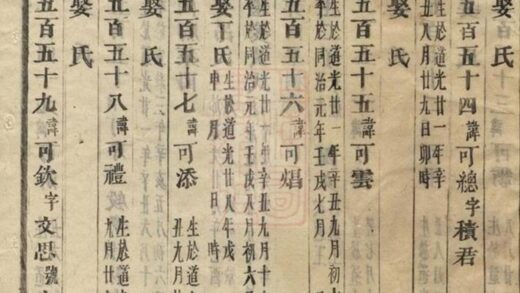 娶 氏
五百五十四 諱可總 字積君
生於道光廿一年辛
丑八月廿九日卯時
娶 氏
五百五十五 諱可雲
生於道光廿一年辛丑九月初
卒於同治元年壬戌七月
五百五十六 諱可熀
生於道光廿一年辛丑九月十
卒於同治元年壬戌八月初六
娶丁氏 生於道光廿八年戊
申 月 日 時
五百五十七 諱可添 生於道
丑九月廿
娶 氏
五百五十八 諱可禮 生於道
九月
娶 氏
五百五十九 諱可欽 字文思 號